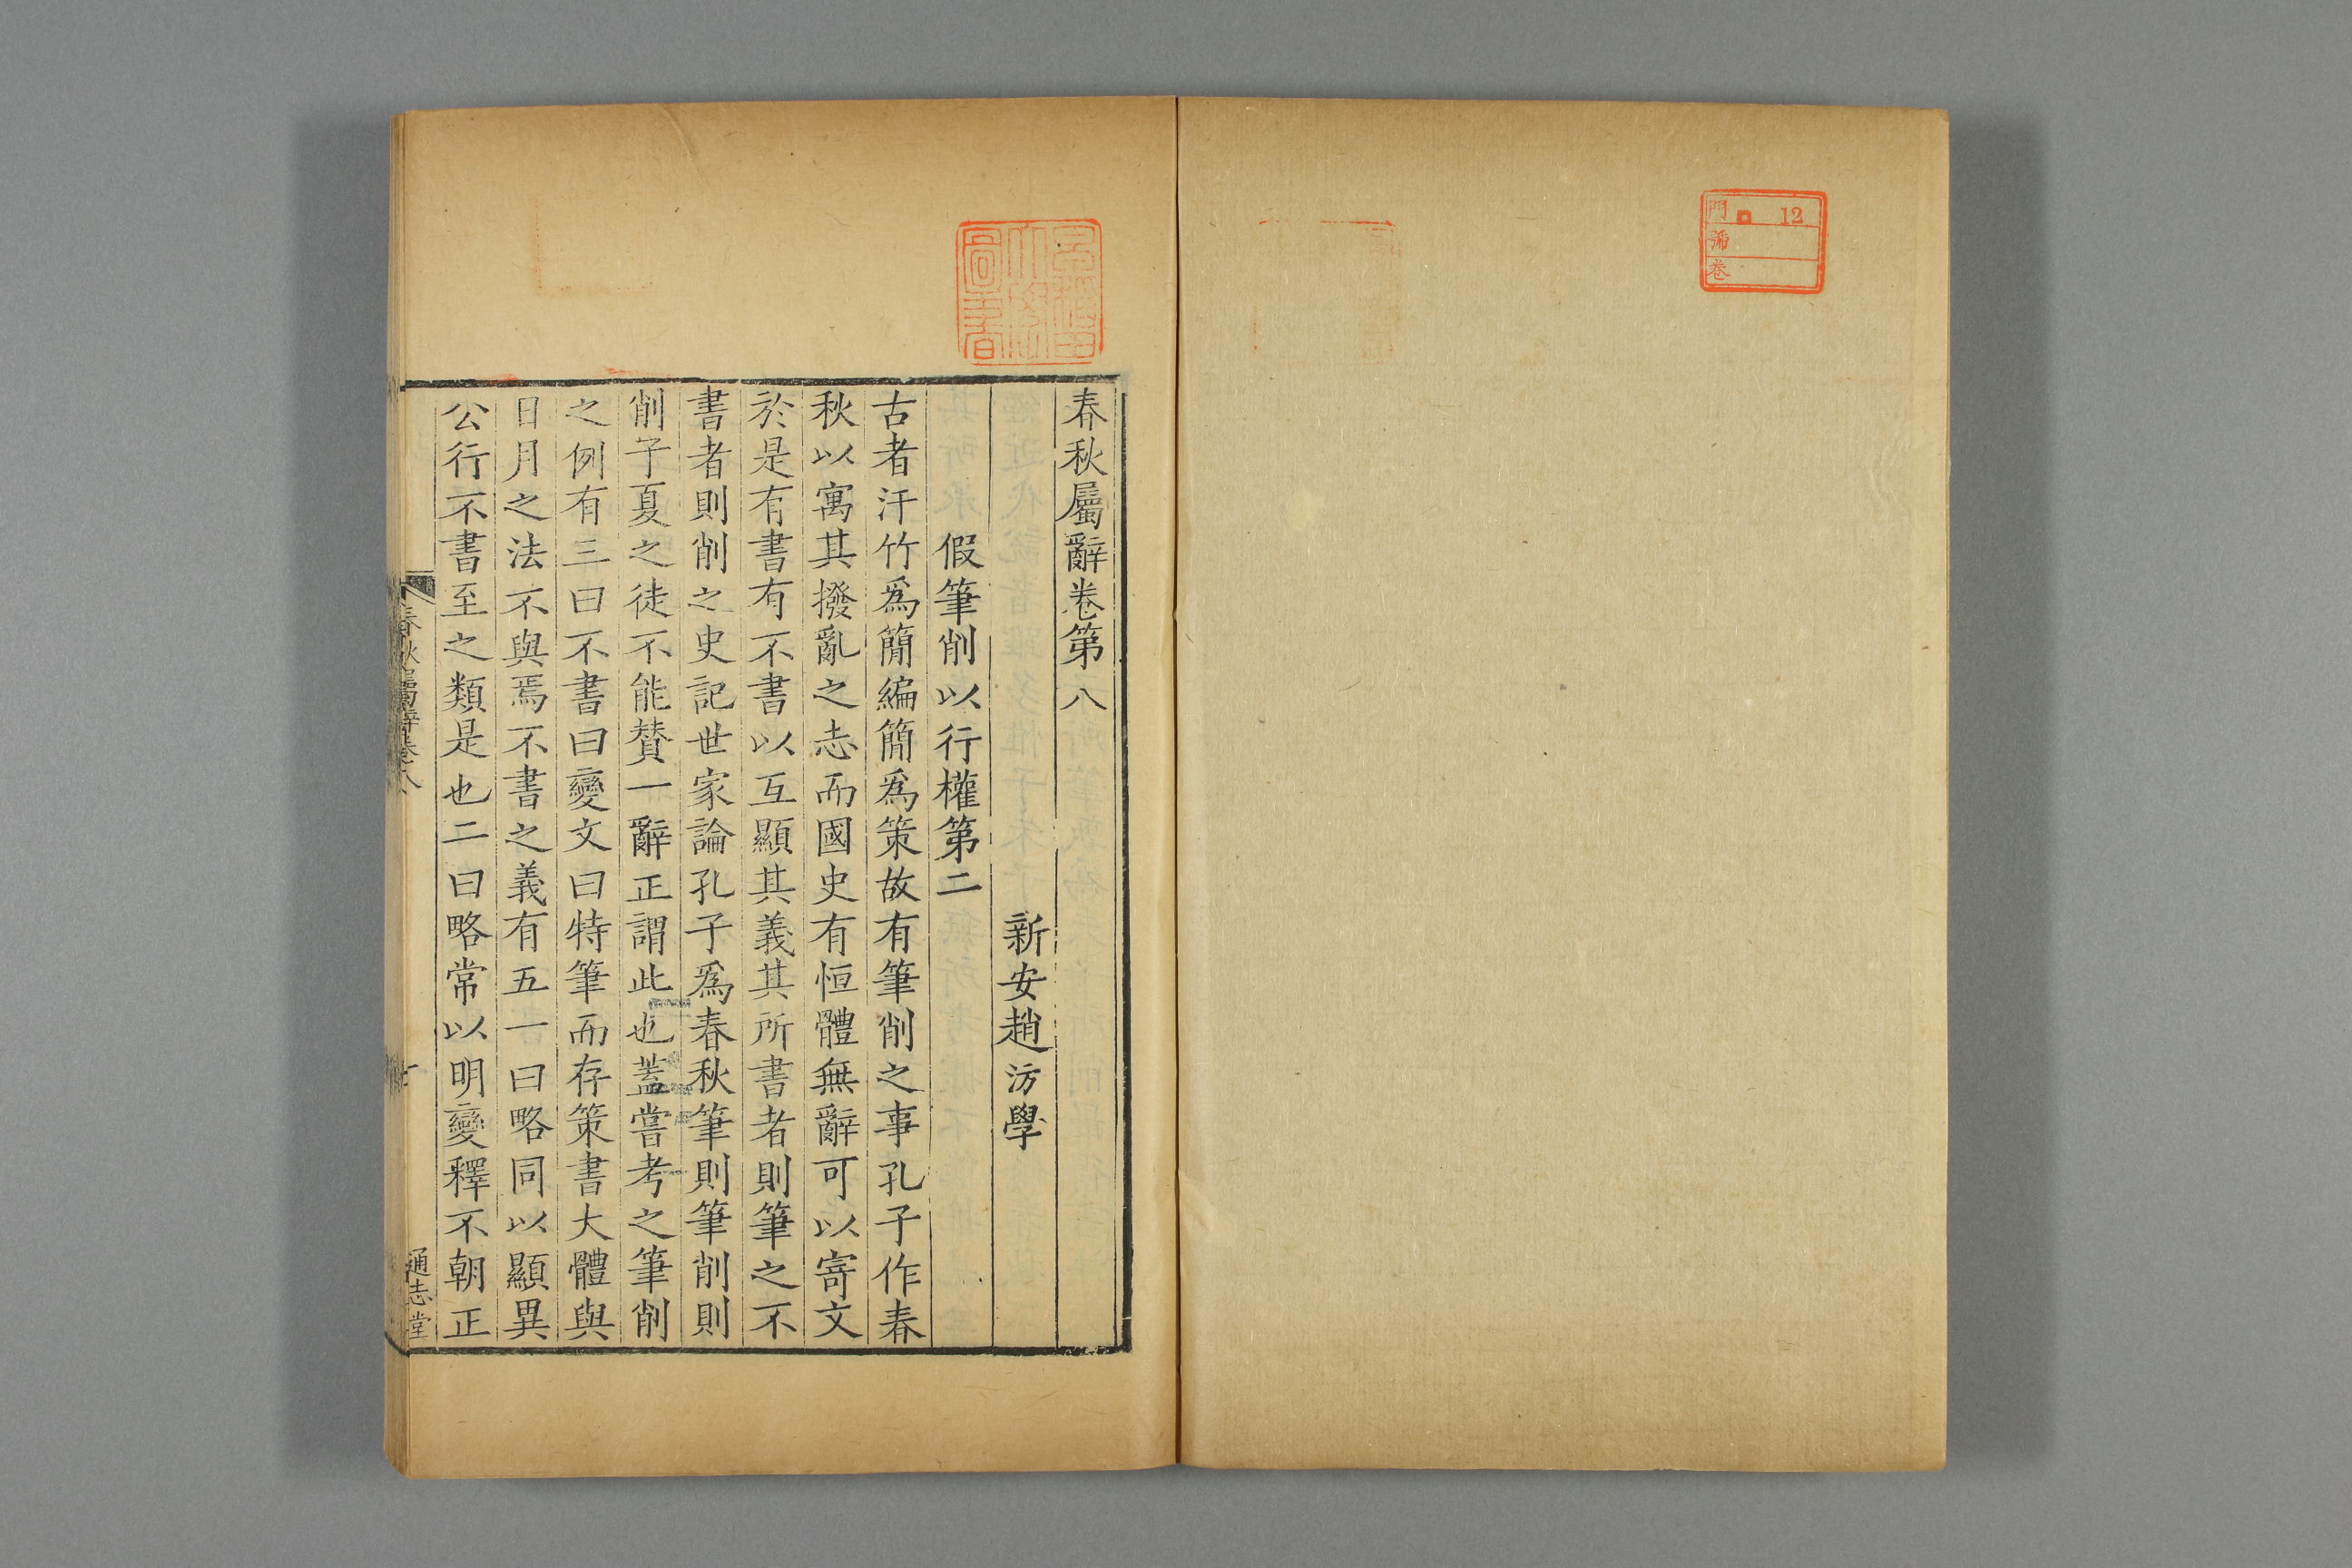 門 12
號
卷
春秋屬辭卷第八
新安趙汸學
假筆削以行權第二
古者汗竹爲簡編簡爲策故有筆削之事孔子作春
秋以寓其撥亂之志而國史有恒體無辭可以寄文
於是有書有不書以互顯其義其所書者則筆之不
書者則削之史記世家論孔子爲春秋筆則筆削則
削子夏之徒不能賛一辭正謂此也蓋嘗考之筆削
之例有三曰不書曰變文曰特筆而存策書大體與
日月之法不與焉不書之義有五一曰略同以顯異
公行不書至之類是也二曰略常以明變釋不朝正
春秋屬辭卷八
通志堂